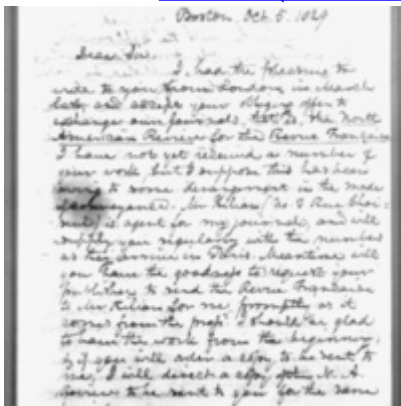 Boston, Oct. 5. 1829
Dear Sir,
I had the pleasure to
write to you from London, in March
last, and accept your obliging offer to
exchange our journals, that is, the North
American Review for the Revue Française
I have not yet received a number of
your work, but I suppose this has been
owing to some derangement in the mode
of conveyance. Mr Kilian (No. 8 Rue Choi-
seul) is agent for my journal, and will
supply you regularly with the numbers
as they arrive in Paris. Meantime will
you have the goodness to request your
Publisher to send the Revue Française
to Mr Kilian for me, promptly as it
comes from the press. I should be glad
to have the work from the beginning,
& if you will order a copy to be sent to
me, I will direct a copy of the N. A.
Review to be sent to you for the same